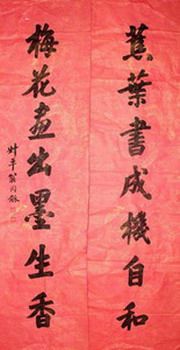 蕉葉書成機自和
梅花畫出墨生香